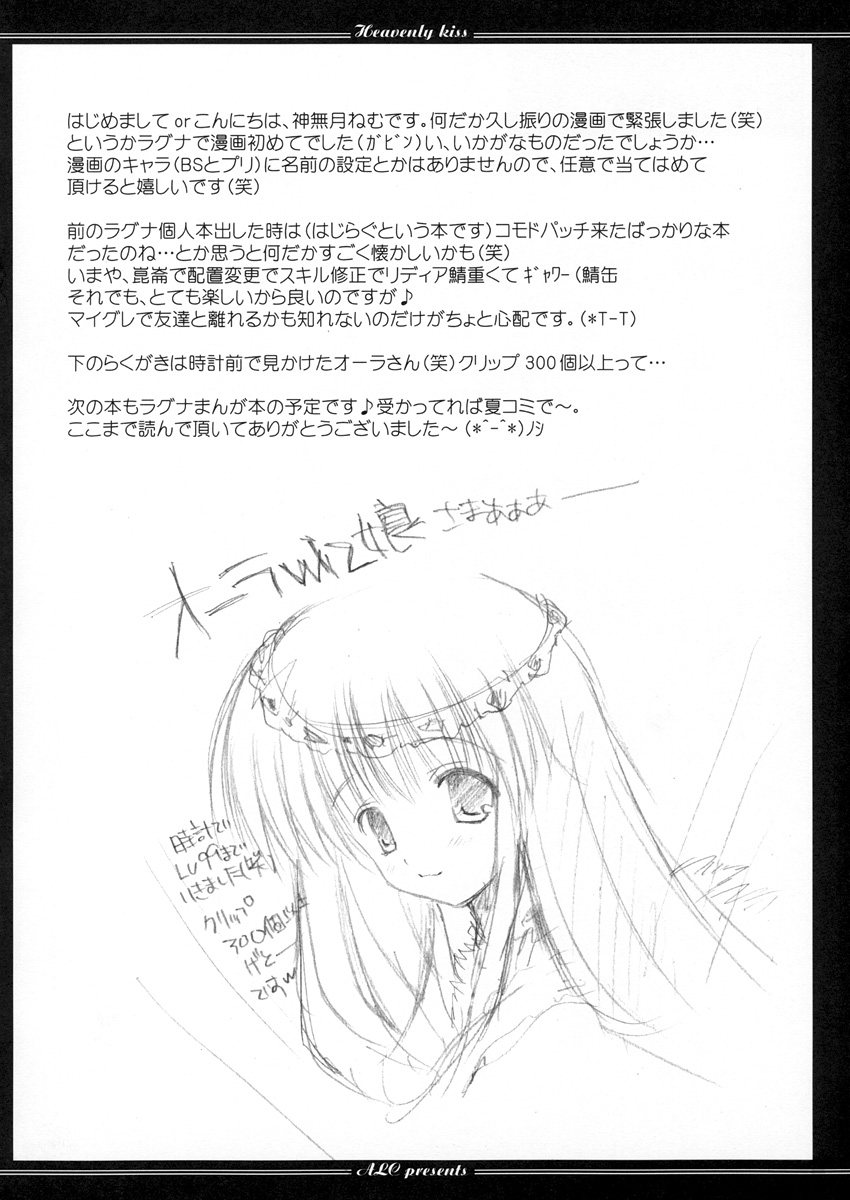 Heavenly kiss
はじめまして or こんにちは、神無月ねむです。何だか久し振りの漫画で緊張しました(笑)
というかラグナで漫画初めてでした(ｶﾞﾋﾞﾝ)い、いかがなものだったでしょうか…
漫画のキャラ(BSとプリ)に名前の設定とかはありませんので、任意で当てはめて
頂けると嬉しいです(笑)
前のラグナ個人本出した時は(はじらぐという本です)コモドパッチ来たばっかりな本
だったのね…とか思うと何だかすごく懐かしいかも(笑)
いまや、崑崙で配置変更でスキル修正でリディア鯖重くてｷﾞｬﾜｰ(鯖缶
それでも、とても楽しいから良いのですが♪
マイグレで友達と離れるかも知れないのだけがちょと心配です。(*T-T)
下のらくがきは時計前で見かけたオーラさん(笑)クリップ300個以上って…
次の本もラグナまんが本の予定です♪受かってれば夏コミで～。
ここまで読んで頂いてありがとうございました～(*^-^*)ﾉｼ
オーラWIZ娘さまぁぁぁー
時計で
Lv99まで
いきました(笑)
クリップ
300個以上
げとー
ALC presents